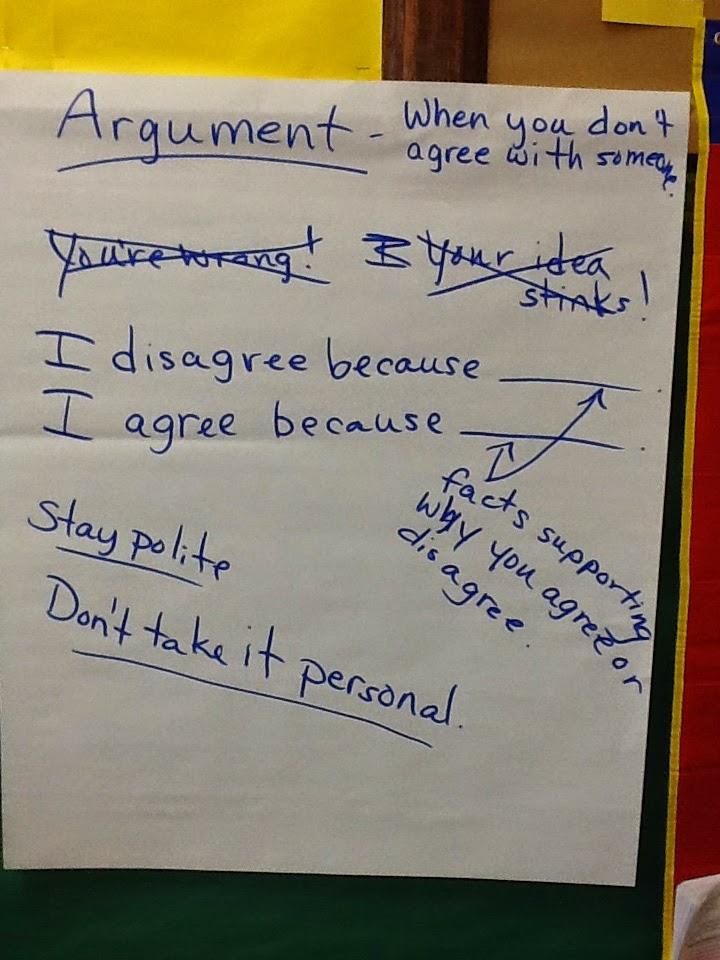 Argument - When you don't
agree with someone.
You're wrong! I Your idea
stinks!
I disagree because ______.
I agree because ______.
facts supporting
why you agree or
disagree.
Stay polite
Don't take it personal.